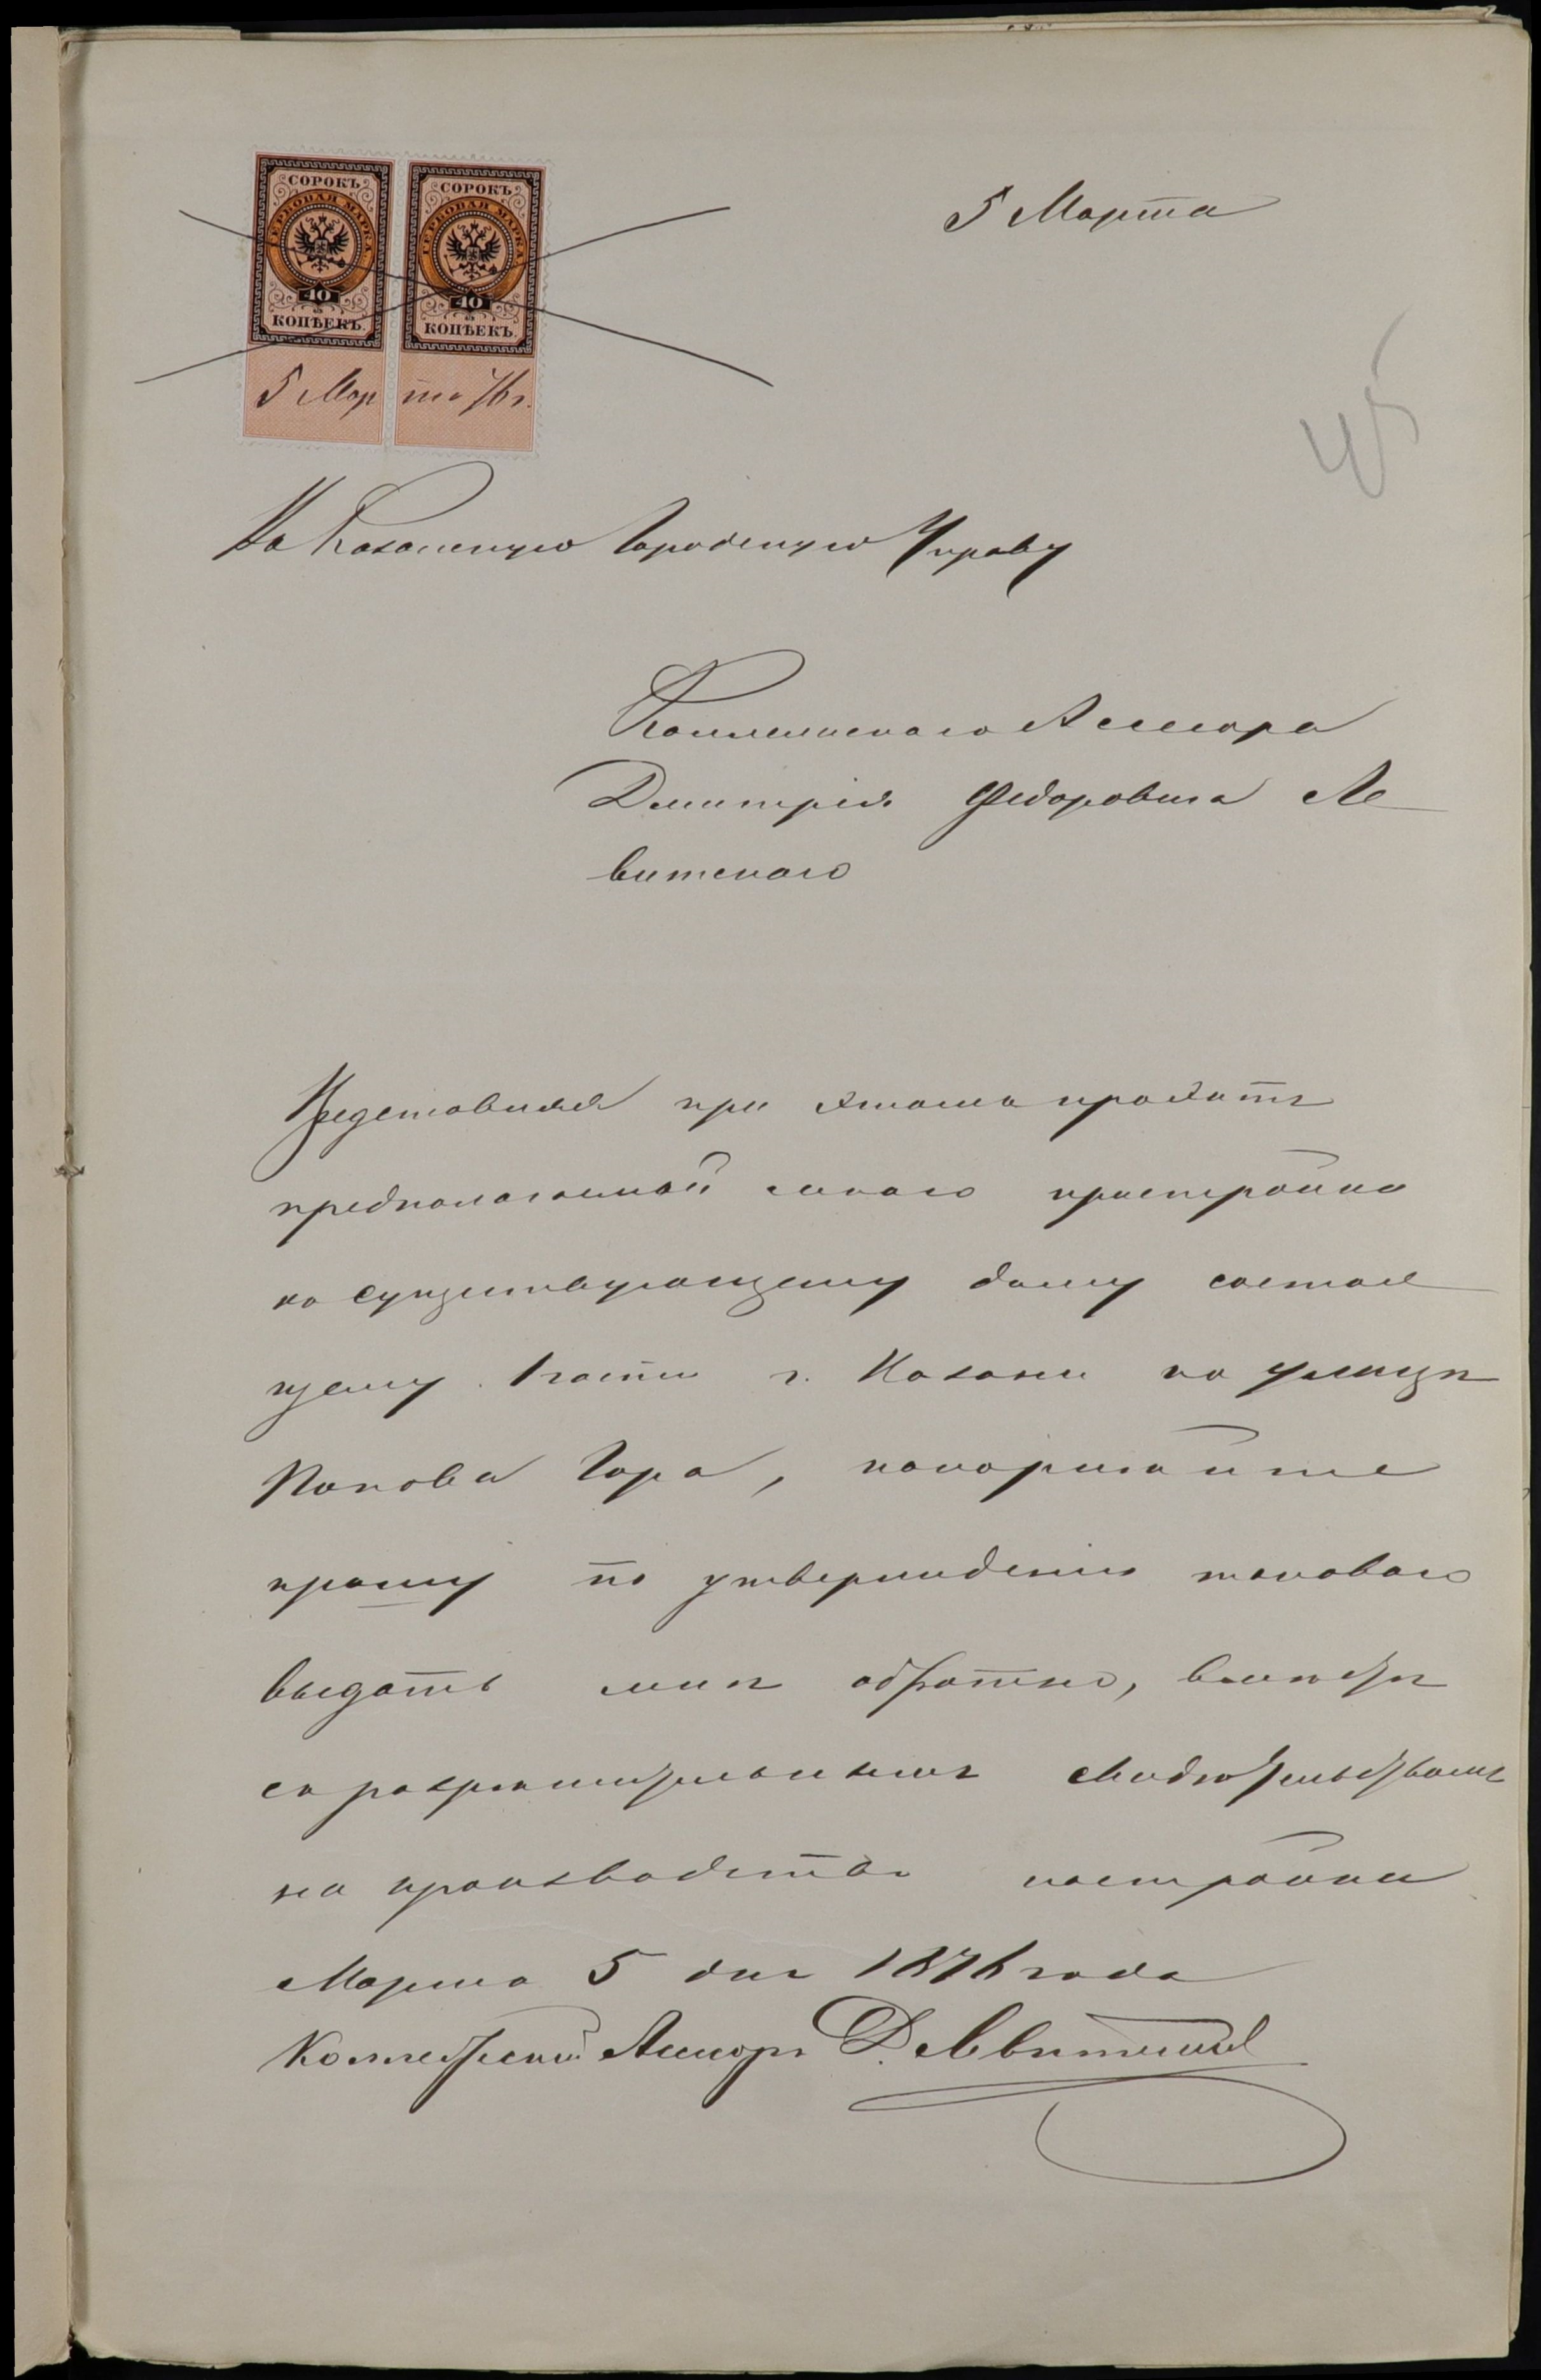 СОРОКЪ
ГЕРБОВАЯ МАРКА
40
КОПѢЕКЪ.
СОРОКЪ
ГЕРБОВАЯ МАРКА
40
КОПѢЕКЪ.
5 Мар
та 76 г.
5 Марта
45
Въ Казанскую Городскую Управу
Коллежскаго Асесора
Дмитрія Федоровича Ле
витскаго
Представляя при этомъ проэктъ
предполагаемой мною пристройки
къ существующему дому состоя
щему 1 части г. Казани на улицѣ
Попова Гора, покорнѣйше
прошу по утвержденіи таковаго
выдать мнѣ обратно, вмѣстѣ
съ разрѣшительнымъ свидѣтельствомъ
на производство постройки
Марта 5 дня 1876 года
Коллежскій Асесоръ Д. Левитскій